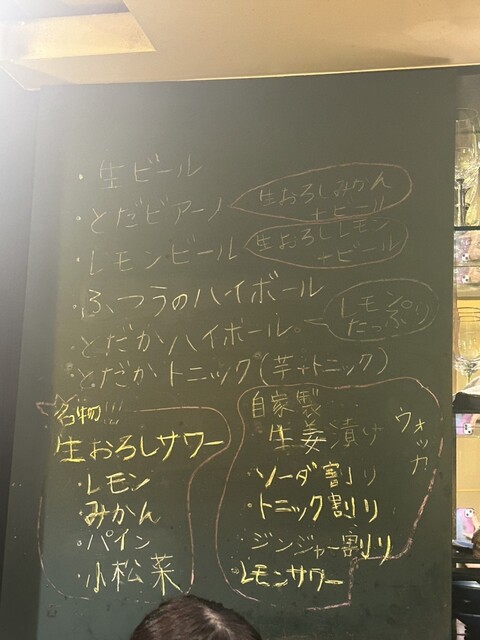 ・生ビール
・とだビアーノ 生おろしみかん+ビール
・レモンビール 生おろしレモン+ビール
・ふつうのハイボール
・とだかハイボール。 レモンたっぷり
・とだかトニック(芋+トニック)
名物!!!
生おろしサワー
・レモン
・みかん
・パイン
・小松菜
自家製
生姜漬け
ウォッカ
・ソーダ割り
・トニック割り
・ジンジャー割り
・レモンサワー